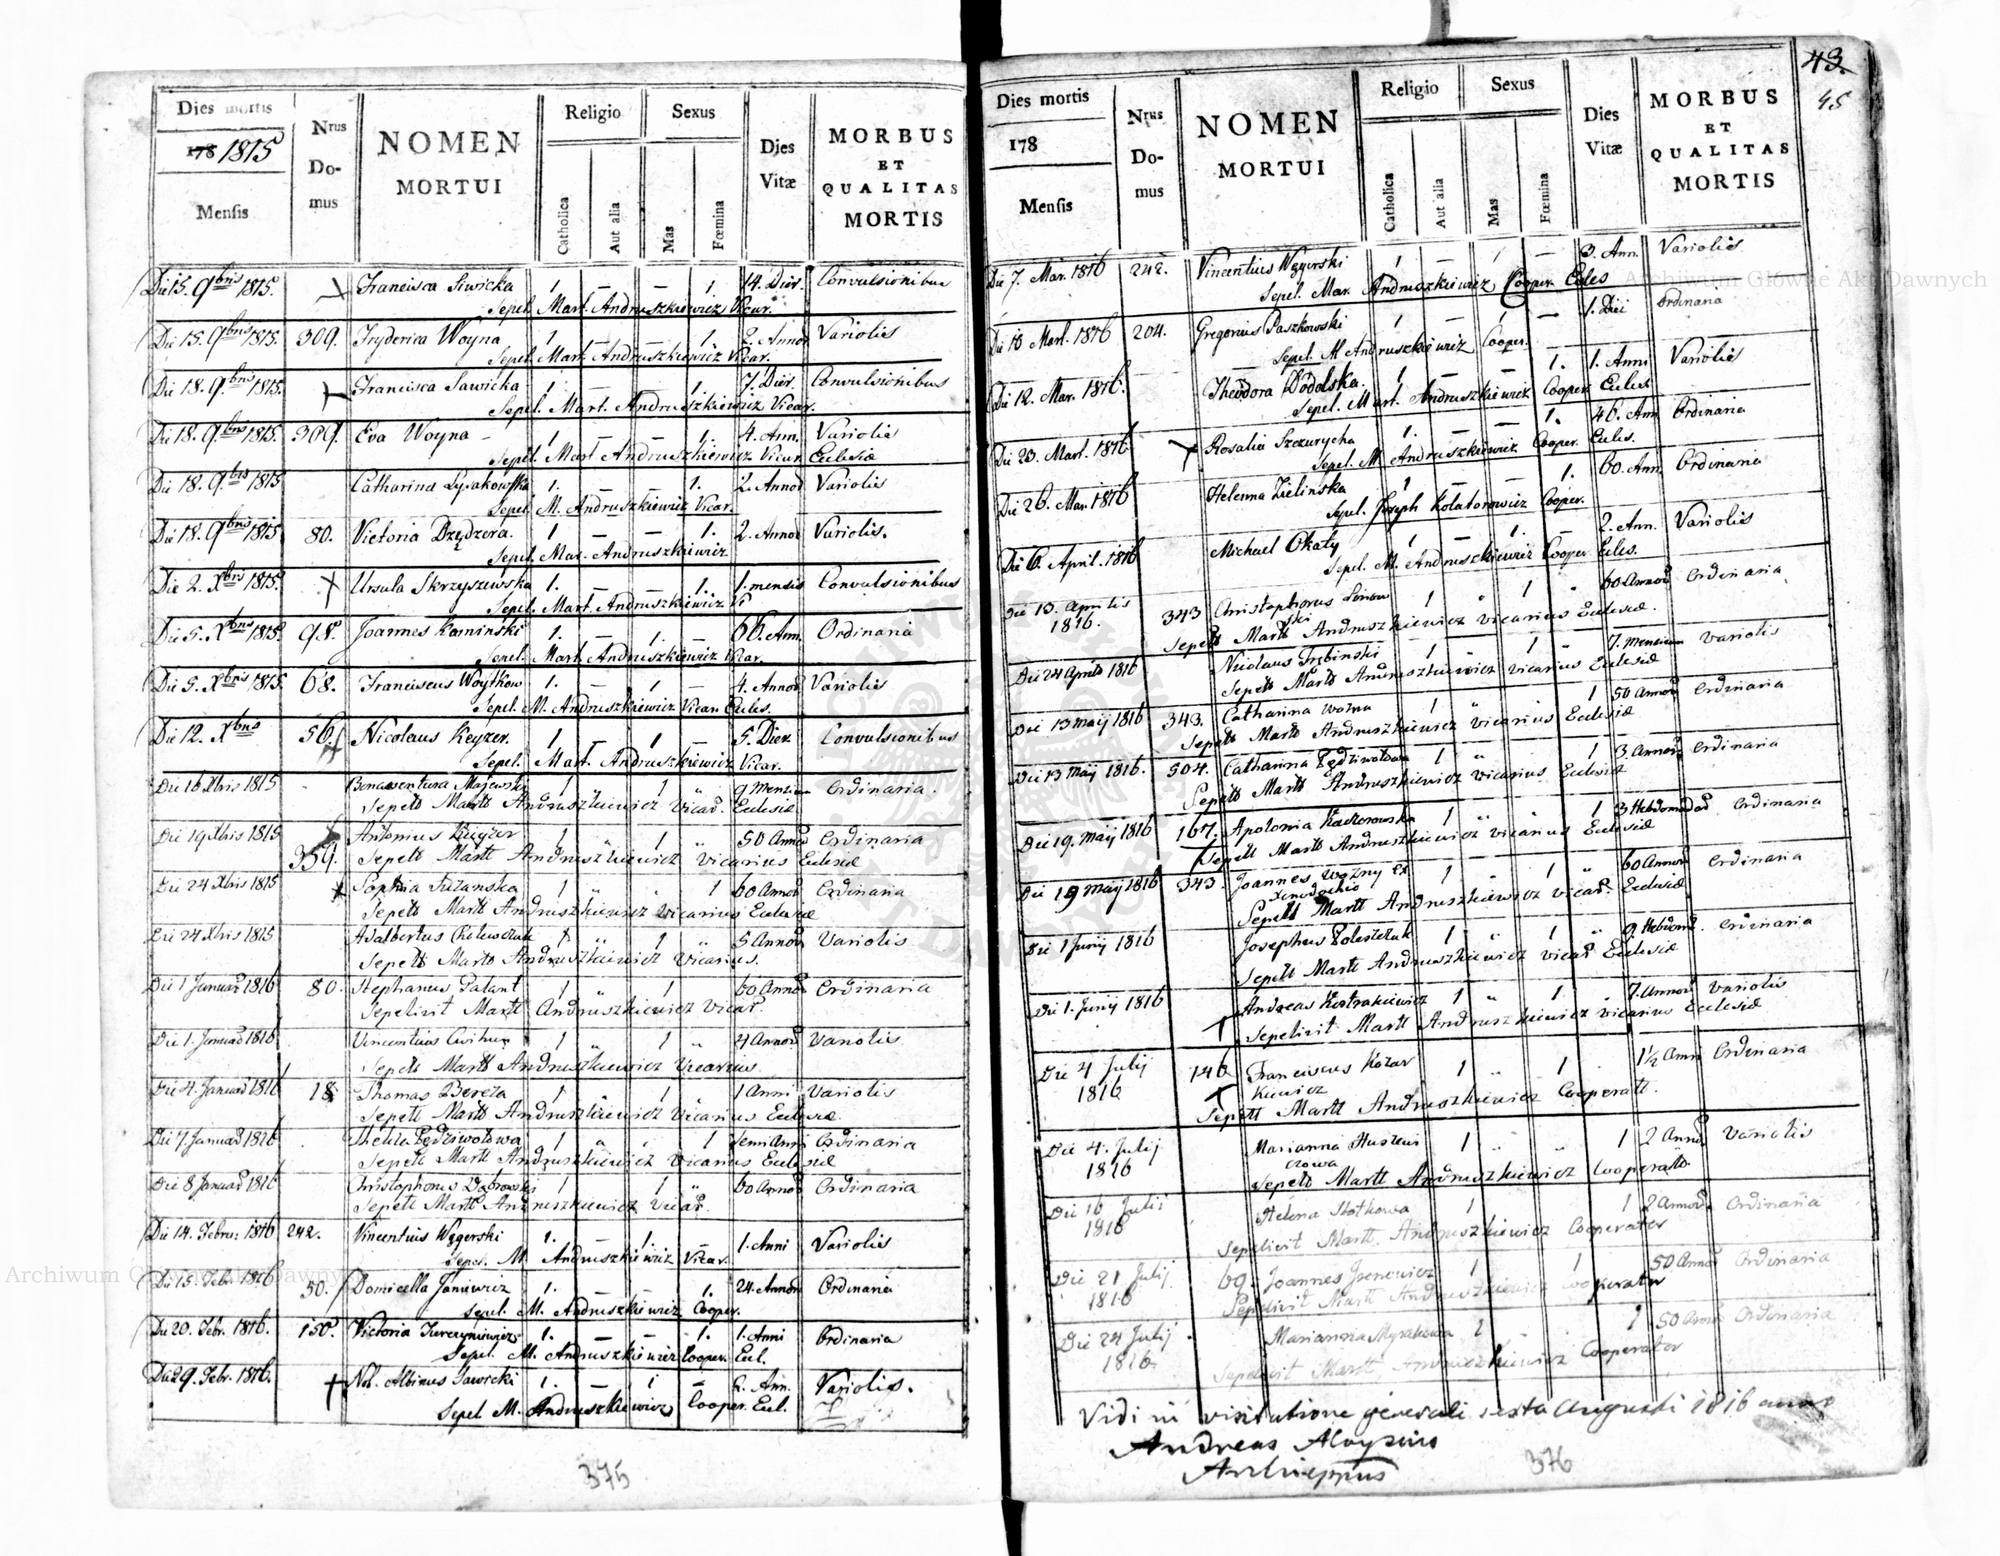 Dies mortis
178 1815
Mensis
Nrus
Do-
mus
NOMEN
MORTUI
Religio
Catholica
Aut alia
Sexus
Mas
Fœmina
Dies
Vitæ
MORBUS
ET
QUALITAS
MORTIS
Die 15. 9bris 1815. Francisca Siwicka 1 — — 1. 14. Dier. Convulsionibus
Sepel. Mart. Andruszkiewicz Vicar.
Die 15. 9bris 1815. 309. Fryderica Woyna 1 — — 1. 2. Annor Variolis
Sepel. Mart. Andruszkiewicz Vicar.
Die 18. 9bris 1815. Francisca Sawicka 1. — — 1. 7. Dier. Convulsionibus
Sepel. Mart. Andruszkiewicz Vicar.
Die 18. 9bris 1815. 309. Eva Woyna - 1 — — 1. 4. Ann. Variolis
Sepel. Mart Andruszkiewicz Vicar. Eclesiæ
Die 18. 9bris 1815 Catharina Lysakowska 1. — — 1. 2. Annor Variolis
Sepel. M. Andruszkiewicz Vicar.
Die 18. 9bris 1815 80. Victoria Dzędzera. 1 — — 1. 2. Annor Variolis.
Sepel. Mar. Andruszkiewicz
Die 2. Xbris 1815. Ursula Skrzyszewska 1. — — 1. 1. mensis Convulsionibus
Sepel. Mart. Andruszkiewicz Vi
Die 5. Xbris 1815. 98. Joannes Kaminski 1. — 1. — 66. Ann. Ordinaria
Sepel. Mart. Andruszkiewicz Vicar.
Die 5. Xbris 1815 68. Franciscus Woytkow 1. — 1 — 4. Annor Variolis
Sepel. M. Andruszkiewicz Vicar. Eccles.
Die 12. Xbris 56. Nicolaus Keyzer. 1 — 1 — 5. Dier. Convulsionibus
Sepel. Mart. Andruszkiewicz Vicar.
Die 16 Xbris 1815 Bonaventura Majewski 1 1 " 9 Mensium Ordinaria.
Sepelt Martt Andruszkiewicz Vicar. Eclesiæ
Die 19 Xbris 1815 359. Antonius Keyzer 1 1 " 50 Annor Ordinaria
Sepelt Martt Andruszkiewicz Vicarius Eclesiæ
Die 24 Xbris 1815 Sophia Tuzanska 1 " " 1 60 Annor Ordinaria
Sepelt Martt Andruszkiewicz Vicarius Eclesiæ
Die 24 Xbris 1815 Adalbertus 1 " 1 " 5 Annor Variolis
Sepelt Martt Andruszkiewicz Vicarius.
Die 1 Januar 1816 80. Stephanus Galant 1 " 1 60 Annor Ordinaria
Sepelivit Martt Andruszkiewicz Vicar.
Die 1. Januar 1816 Vincentius 1 " 1 " 4 Annor Variolis
Sepelt Martt Andruszkiewicz Vicarius
Die 4. Januar 1816 18 Thomas Bereza 1 1 " 1 Anni Variolis
Sepelt Martt Andruszkiewicz Vicarius Eclesiæ
Die 7. Januar 1816 Thekla Pędziwołowa 1 " . 1 semi Anni Ordinaria
Sepelt Martt Andruszkiewicz Vicarius Eclesiæ
Die 8 Januar 1816 Christophorus Dąbrowski 1 1 " 60 Annor Ordinaria
Sepelt Martt Andruszkiewicz Vicar.
Die 14. Febru: 1816 242. Vincentius Węgerski 1. — 1. — 1. Anni Variolis
Sepel. M. Andruszkiewicz Vicar.
Die 15. Febr. 1816 50. Domicella Janiewicz 1. — — 1. 24. Annor Ordinaria
Sepel. M. Andruszkiewicz Cooper.
Die 20. Febr. 1816. 150. Victoria Jurczyniewicz 1. — — 1. 1. Anni Ordinaria
Sepel. M. Andruszkiewicz Cooper. Ecl.
Die 29. Febr. 1816. Nob. Albinus Sawicki 1. — 1 — 2. Ann. Variolis.
Sepel M. Andruszkiewicz Cooper. Ecl.
375
43.
45
Dies mortis
178
Mensis
Nrus
Do-
mus
NOMEN
MORTUI
Religio
Catholica
Aut alia
Sexus
Mas
Fœmina
Dies
Vitæ
MORBUS
ET
QUALITAS
MORTIS
Die 7. Mar. 1816 242. Vincentius Węgerski 1 — 1 — 3. Ann. Variolis
Sepel. Mar. Andruszkiewicz Cooper. Ecles
Die 10 Mart. 1816 204. Gregorius Paszkowski 1 — 1 — 1. Diei Ordinaria
Sepel. M Andruszkiewicz Cooper.
Die 12. Mar. 1816. Theodora Dodolska. 1 — — 1. 1. Anni Variolis
Sepel. Mart. Andruszkiewicz Cooper Ecles
Die 23. Mart. 1816 Rosalia Szczurycha 1. — — 1. 46. Ann Ordinaria
Sepel. M. Andruszkiewicz Cooper. Ecles.
Die 26. Mar. 1816 Helenna Zielinska 1 — — 1. 60. Ann. Ordinaria
Sepel. Joseph Kolatorowicz Cooper.
Die 6. April. 1816 Michael Okaty 1 — 1. — 2. Ann. Variolis
Sepel. M. Andruszkiewicz Cooper Ecles.
Die 13. Aprilis 343 Christophorus 1 " 1 " 60 Annor Ordinaria
1816. ski
Sepelt Martt Andruszkiewicz Vicarius Eclesiæ.
Die 24 Aprils 1816 Nicolaus Trębinski 1 1 " 7. Mensium Variolis
Sepelt Martt Andruszkiewicz Vicarius Eclesiæ
Die 13 Maij 1816 343. Catharina Wozna 1 " 1 50 Annor Ordinaria
Sepelt Martt Andruszkiewicz Vicarius Eclesiæ
Die 13 Maij 1816. 504. Catharina Pędziwołowa 1 " 1 3 Annor Ordinaria
Sepelt Martt Andruszkiewicz Vicarius Eclesiæ
Die 19. Maij 1816 167. Apolonia Kaczorowska 1 " 1 3 Hebdomadar Ordinaria
Sepelt Martt Andruszkiewicz Vicarius Eclesiæ
Die 19 Maij 1816 343. Joannes Wozny Ex 1 " 1 " 60 Annor Ordinaria
Xenodochio
Sepelt Martt Andruszkiewicz Vicar. Eclesiæ
Die 1 Junij 1816 Josephus 1 " 1 " 9. Hebdomd. Ordinaria
Sepelt Martt Andruszkiewicz Vicar Eclesiæ
Die 1. Junij 1816 Andreas Kostrakiewicz 1 " 1 . 7. Annor Variolis
Sepelivit Martt Andruszkiewicz Vicarius Eclesiæ
Die 4 Julij 146 Franciscus Kozar 1 " 1 . 1½ Anni Ordinaria
1816 kiewicz
Sepelt Martt Andruszkiewicz Cooperatt.
Die 4. Julij Marianna 1 " 1 2 Annor Variolis
1816 czowa
Sepelt Martt Andruszkiewicz Cooperato
Die 16 Julij Helena Slotkowa 1 1 2 Annor Ordinaria
1816
Sepelivit Martt. Andruszkiewicz Cooperator
Die 21 Julij 69. Joannes 1 1 50 Annor Ordinaria
1816
Sepelivit Martt Andruszkiewicz Cooperator
Die 24 Julij Marianna 1 1 50 Annor Ordinaria
1816.
Sepelivit Martt. Andruszkiewicz Cooperator
Vidi in visitatione generali sexta Augusti 1816 anno
Andreas Aloysius
376
Archiwum Główne Akt Dawnych